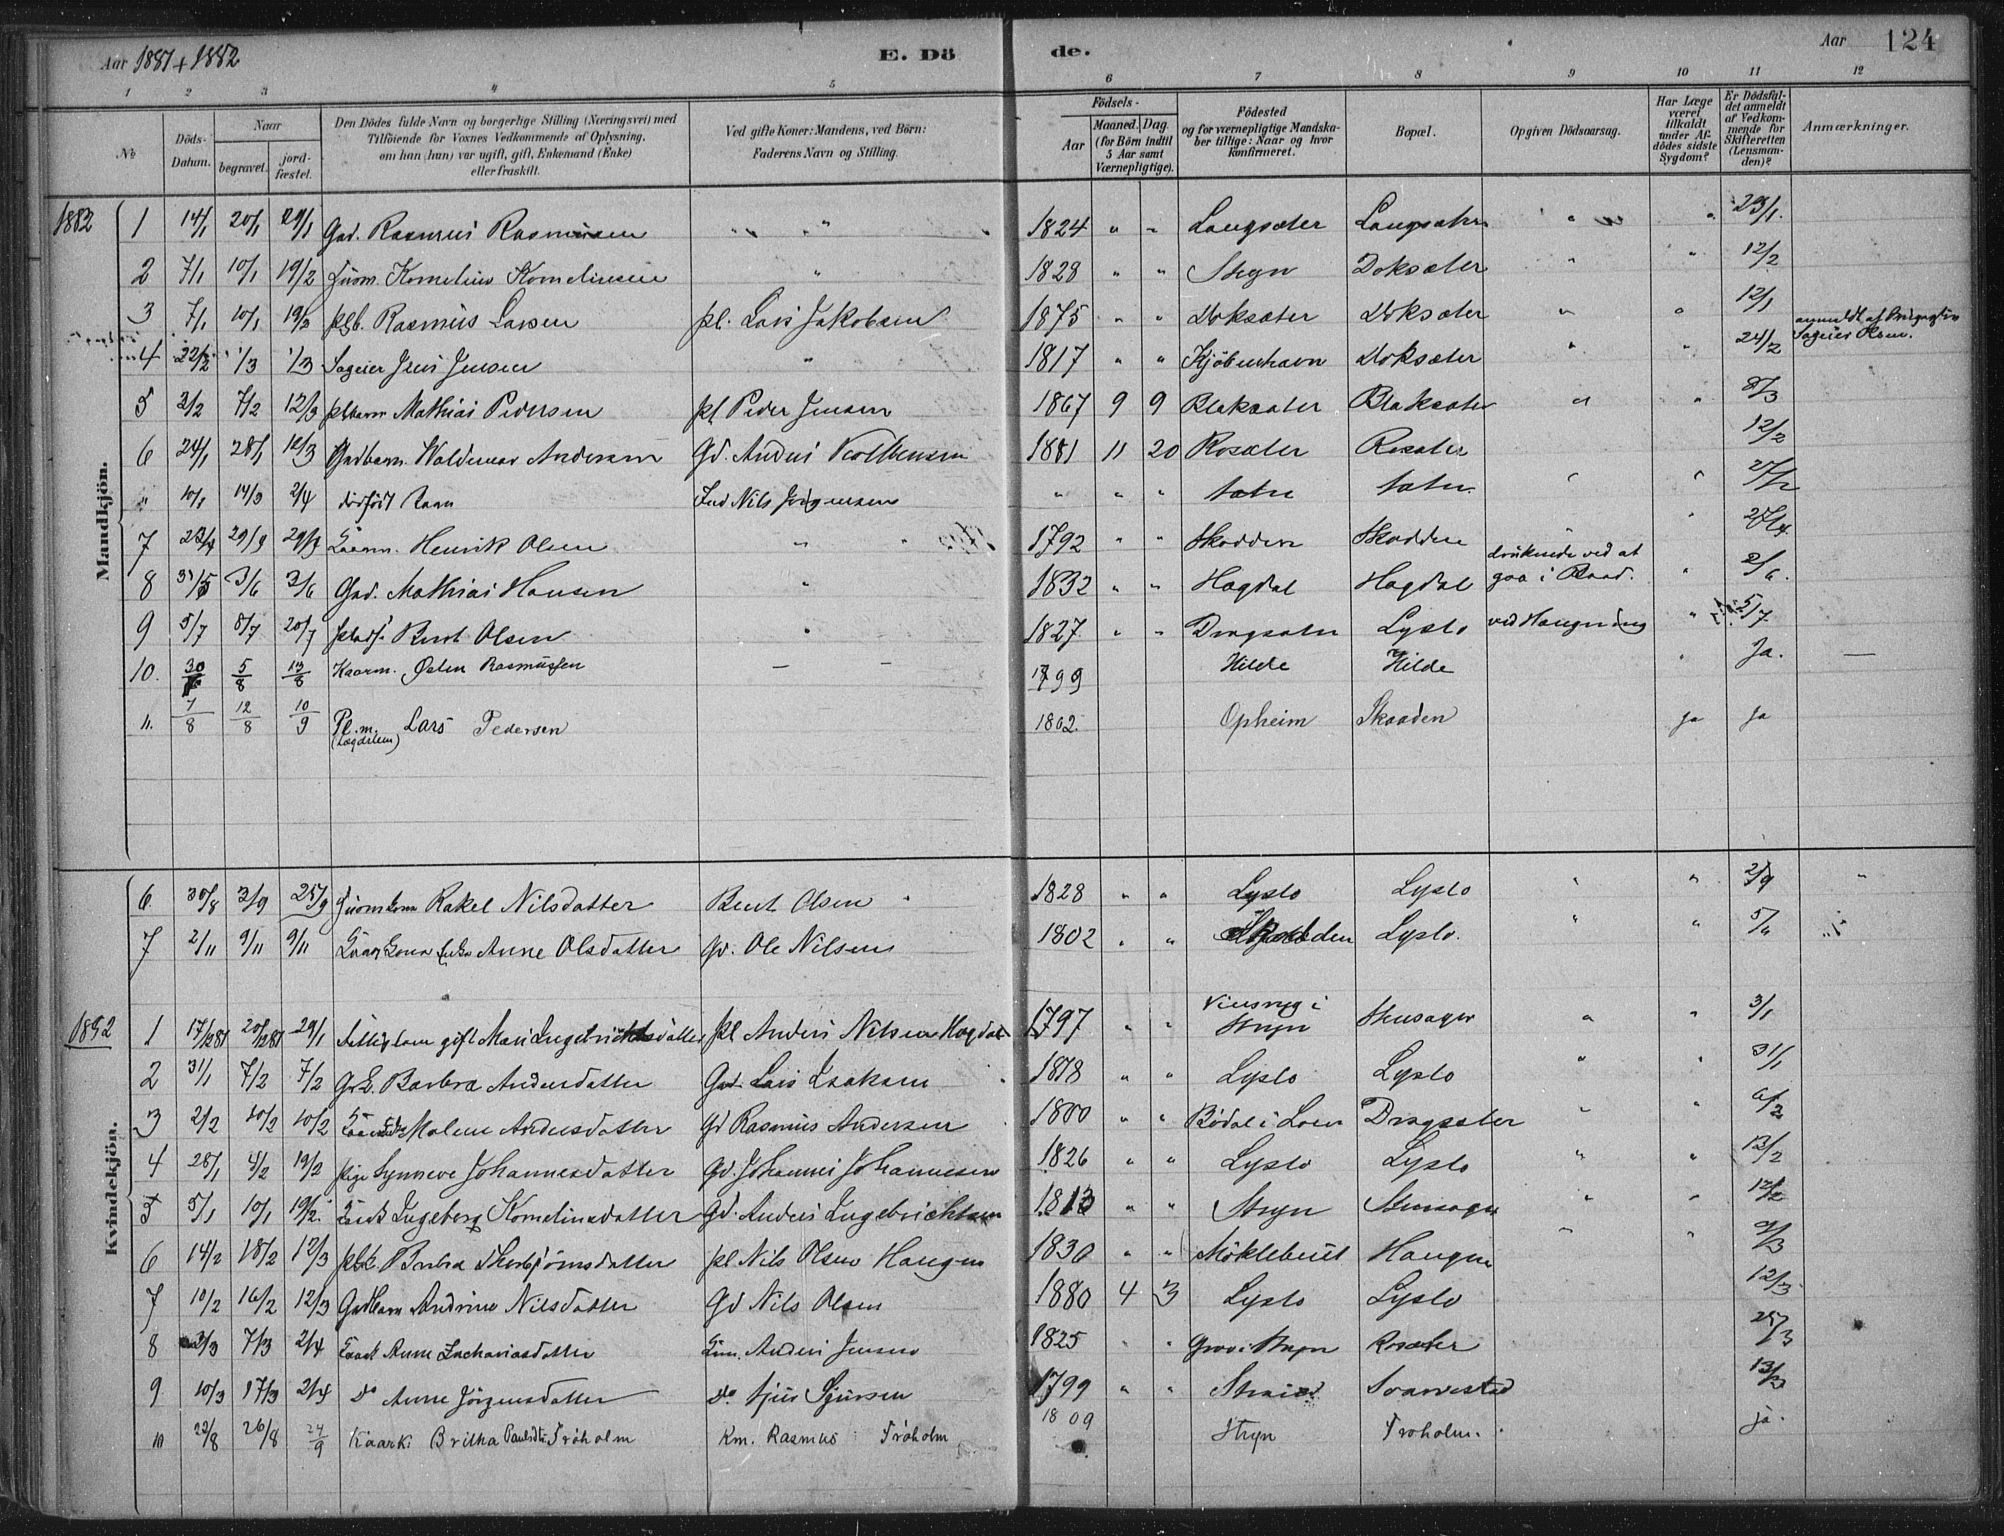 Aar 1881 + 1882 E. Dö de. Aar 124
1 2 3 4 5 6 7 8 9 10 11 12
No
Döds-Datum.
Naar
begravet. jord-fæstet.
Den Dödes fulde Navn og borgerlige Stilling (Næringsvei) med
Tilföiende for Voxnes Vedkommende af Oplysning.
om han (hun) var ugift, gift, Enkemand (Enke)
eller fraskilt.
Ved gifte Koner: Mandens, ved Börn:
Faderens Navn og Stilling.
Födsels-
Aar Maaned. Dag.
(for Börn indtil
5 Aar samt
Værnepligtige).
Födested
og for værnepligtige Mandska-
ber tillige: Naar og hvor
konfirmeret.
Bopæl.
Opgiven Dödsaarsag.
Har Læge
været
tilkaldt
under Af-
dödes sidste
Sygdom?
Er Dödsfal-
det anmeldt
af Vedkom-
mende for
Skifteretten
(Lensman-
den)?
Anmærkninger.
Mandkjön.
1882 1 14/1 20/1 29/1 Gad. Rasmus Rasmussen " " 1824 " " Langsæter Langsæter " " 23/1.
2 7/1 10/1 19/2 Kornelius Korneliussen " 1828 " " Stryn Doksæter " " 12/2
3 7/1 10/1 19/2 plb. Rasmus Larsen pl. Lars Jakobsen 1875 " " Doksæter Doksæter " " 12/1
4 22/2 1/3 1/3 Jens Jensen " 1817 " " Kjöbenhavn Doksæter " " 24/2 anmeldt af
5 3/2 7/2 12/3 plbarn Mathias Pedersen pl Peder Jensen 1867 9 9 Blaksæter Blaksæter " " 8/3
6 24/1 28/1 12/3 Gadbarn. Waldemar Andersen Gd. Anders 1881 11 20 Rosæter Rosæter 12/2
" 10/1 14/3 2/4 dödfödt Barn Ind Nils Jörgensen " " " " " 27/2
7 23/4 29/9 29/9 Kaarm. Henrik Olsen " " 1792 " " Skodden Skodden " " 27/4
8 31/5 3/6 3/6 Gad. Mathias Hansen " 1832 " " Hagdal Hagdal druknede ved at
gaa i Baad. " 2/6.
9 5/7 8/7 20/7 Bent Olsen " 1827 " " Dragsæter Lyslo ved Hængning " 5/7
10. 30/ 5/8 13/8 Kaarm. Østen Rasmussen — — 1799 Hilde Hilde " Ja. —
11. 7/8 12/8 10/9 Pl. m. Lars Pedersen 1802. Opheim Skaaden ja ja
(Lægdslem)
Kvindekjön.
6. 30/8 3/9 25/9 Rakel Nilsdatter Bent Olsen " 1828 " " Lyslo Lyslo " " 2/9 "
7 2/11 9/11 9/11 Anne Olsdatter Gd. Ole Nilsen 1802 " " Lyslo. " " 5/6
1882 1 17/12 81 20/12 81 29/1 gift Mari Ingebrichtsdatter pl Anders Nilsen Hagdal 1797 " " i
Stryn Stensager " " 3/1
2 31/1 7/2 7/2 Barbra Andersdatter Gad. Lars Isaksen " 1818 " " Lyslo Lyslo " " 31/1
3 2/2 10/2 10/2 Malene Andersdatter Gd Rasmus Andersen 1800 " " Bödal i Loen Dragsæter " " 6/2
4 28/1 4/2 19/2 pige Synneve Johannesdatter Gd. Johannes Johannesen 1826 " " Lyslo Lyslo " " 13/2
5 5/1 10/1 19/2. Ingeborg Korneliusdatter Gd. Anders Ingebrichtsen 1813 " " Stryn Stensager " " 12/2
6 14/2 18/2 12/3 Barbra Thorbjörnsdatter pl Nils Olsen Haugen 1830 " " Möklebust Haugen " " 9/3
7 10/2 16/2 12/3 Gadbarn Andrine Nilsdatter Gd Nils Olsen 1880 4 3 Lyslo Lyslo 12/3
8 3/3 7/3 2/4 Anne Zachariasdatter Anders Jensen 1825 " " Grov i Stryn Rosæter 25/3
9 10/3 17/3 2/4 Do Anne Jörgensdatter Do Sjursen 1799 " " 13/3
10 23/8 26/8 24/9 Kaark. Britha Paulsdtr. Tröholm Km. Rasmus Tröholm 1809 Stryn Troholm. ja.